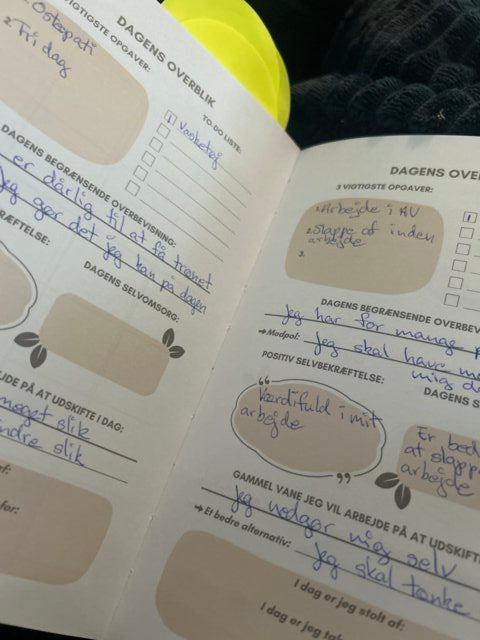 DAGENS OVERBLIK
VIGTIGSTE OPGAVER:
1. Osteopati
2. Fri dag
TO DO LISTE:
Vasketøj
DAGENS BEGRÆNSENDE OVERBEVISNING:
er dårlig til at få trænet
Jeg gør det jeg kan på dagen
KRÆFTELSE:
DAGENS SELVOMSORG:
JDE PÅ AT UDSKIFTE I DAG:
meget slik
mindre slik
af:
for:
DAGENS OVE
3 VIGTIGSTE OPGAVER:
1. Arbejde i AU
2. Slappe af inden
arbejde
3.
DAGENS BEGRÆNSENDE OVERBEV
Jeg har for mange
→ Modpol: Jeg skal have me
mig
POSITIV SELVBEKRÆFTELSE:
DAGENS S
Værdifuld i mit
arbejde
Er
at slappe
arbejde
GAMMEL VANE JEG VIL ARBEJDE PÅ AT UDSKIFT
Jeg nedgør mig selv
→ Et bedre alternativ: Jeg skal tænke
I dag er jeg stolt af:
I dag er jeg tak